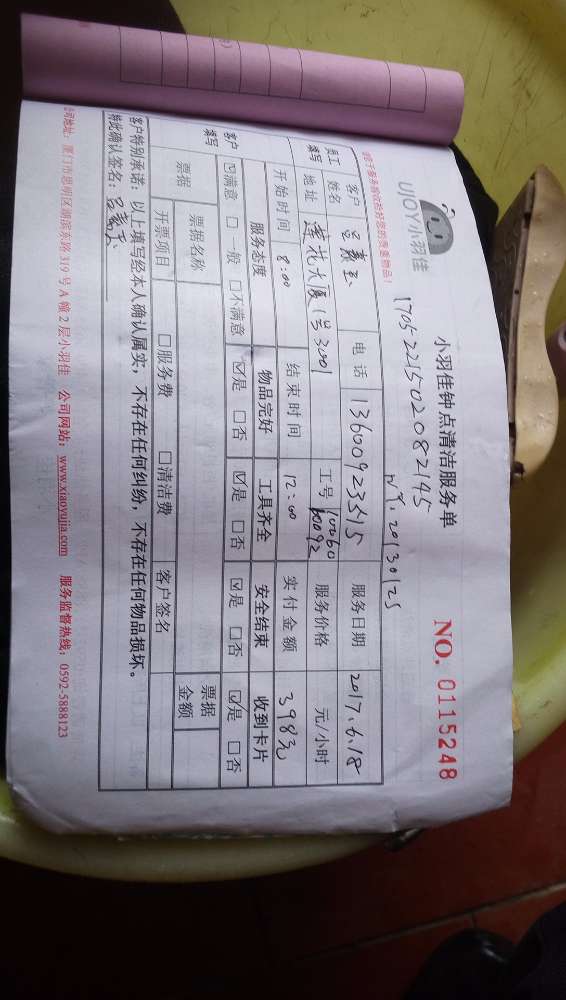 UJOY小羽佳
小羽佳钟点清洁服务单
NO. 0115248
1705221502082145
20130125
客户姓名
电话 13600923515
服务日期 2017.6.18
员工填写
地址 莲花大厦1号3001
工号 10060 60092
服务价格 元/小时
开始时间 8:00
结束时间 12:00
实付金额 398元
客户填写
服务态度 物品完好 工具齐全 安全结束 收到卡片
☑满意 □一般 □不满意 ☑是 □否 ☑是 □否 ☑是 □否 ☑是 □否
票据
票据名称
票据金额
开票项目 □服务费 □清洁费 客户签名
客户特别承诺：以上填写经本人确认属实，不存在任何纠纷，不存在任何物品损坏。
特此确认签名：
公司地址：厦门市思明区湖滨东路 319 号 A 幢 2 层小羽佳 公司网站：www.xiaoyujia.com 服务监督热线：0592-5888123